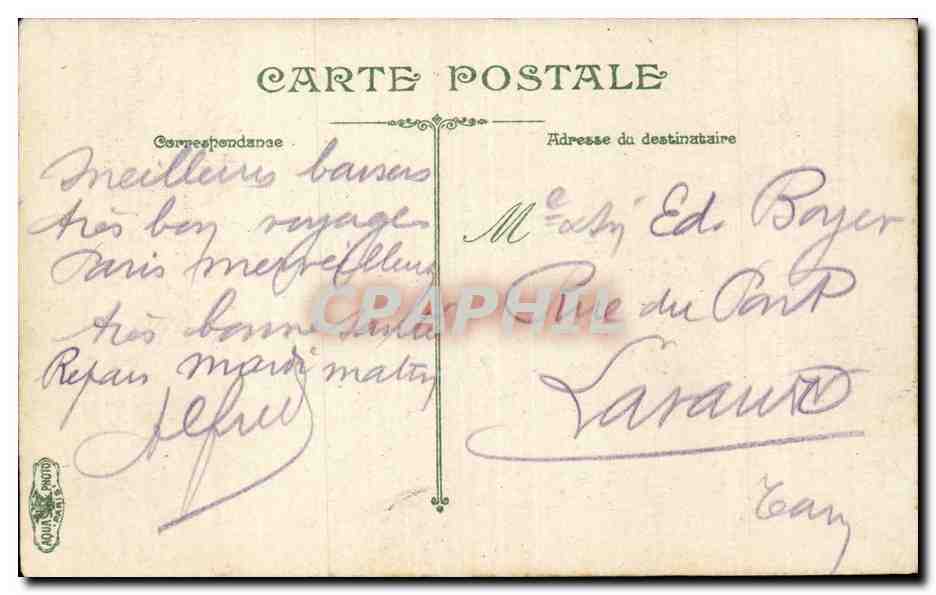 CARTE POSTALE
Correspondance
Meilleurs baisers
très bon voyages
Paris merveilleux
très bonne santé
Repars mardi matin
Alfred
Adresse du destinataire
Me Ed. Boyer
Rue du Pont
Lavaur
Tarn
CPAPHIL
AQUA PHOTO
PARIS